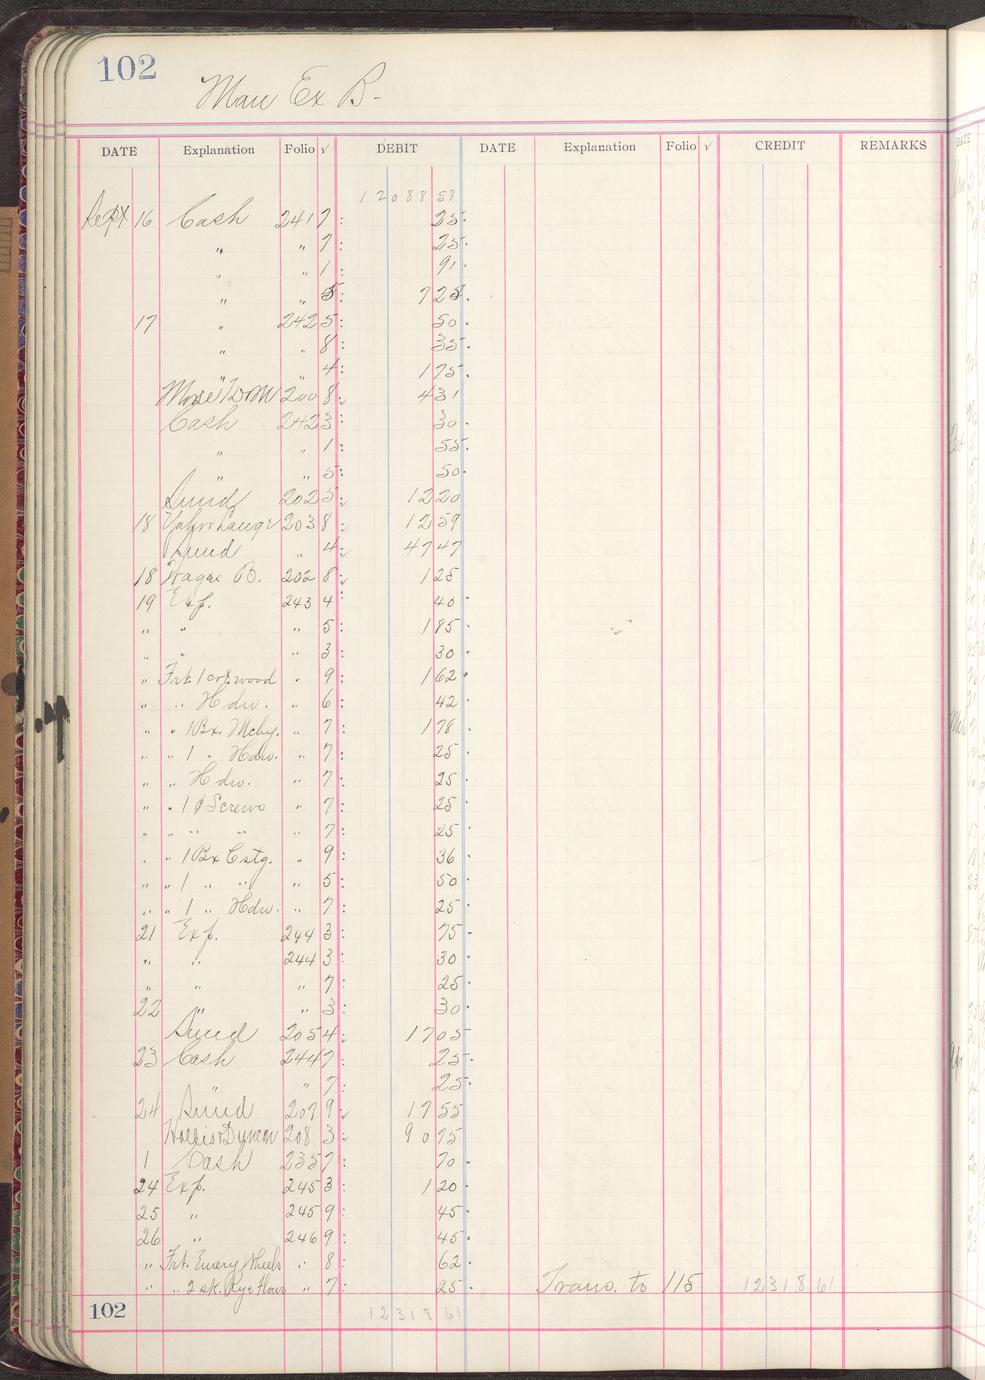 102
Man Ex B-
DATE Explanation Folio √ DEBIT DATE Explanation Folio √ CREDIT REMARKS
12088 58
Sept 16 Cash 241 7: 25.
" " 7: 25.
" " 1: 91.
" " 5: 7 28.
17 " 242 5: 50.
" " 8: 35.
" 4: 1 75.
200 8: 4 31
Cash 242 3: 30.
" " 1: 55.
" " 5: 50.
Sund 202 5: 12 20
18 203 8: 12 59
Sund " 4: 47 47
18 Wages B. 202 8: 1 25
19 Exp. 243 4: 40.
" " " 5: 1 85.
" " " 3: 30.
" Frt. 1 wood " 9: 1 62.
" " Hdw. " 6: 42.
" " 1 Bx. Mchy. " 7: 1 78.
" " 1 " Hdw. " 7: 25.
" " Hdw. " 7: 25.
" " 1 Screws " 7: 25.
" " " " " 7: 25.
" " 1 Bx Cstg. " 9: 36.
" " 1 " " " 5: 50.
" " 1 " Hdw. " 7: 25.
21 Exp. 244 3: 75.
" " 244 3: 30.
" " " 7: 25.
22 " " 3: 30.
Sund 205 4: 17 05
23 Cash 244 7: 25.
" " 7: 25.
24 Sund 207 9: 17 55
Hollis & Duncan 208 3: 90 75
1 Cash 235 7: 70.
24 Exp. 245 3: 1 20
25 " 245 9: 45.
26 " 246 9: 45.
" Frt. Emery Wheels " 8: 62
" " 2 sk. Rye Flour " 7: 25. Trans. to 115 12318 61
102 12318 61